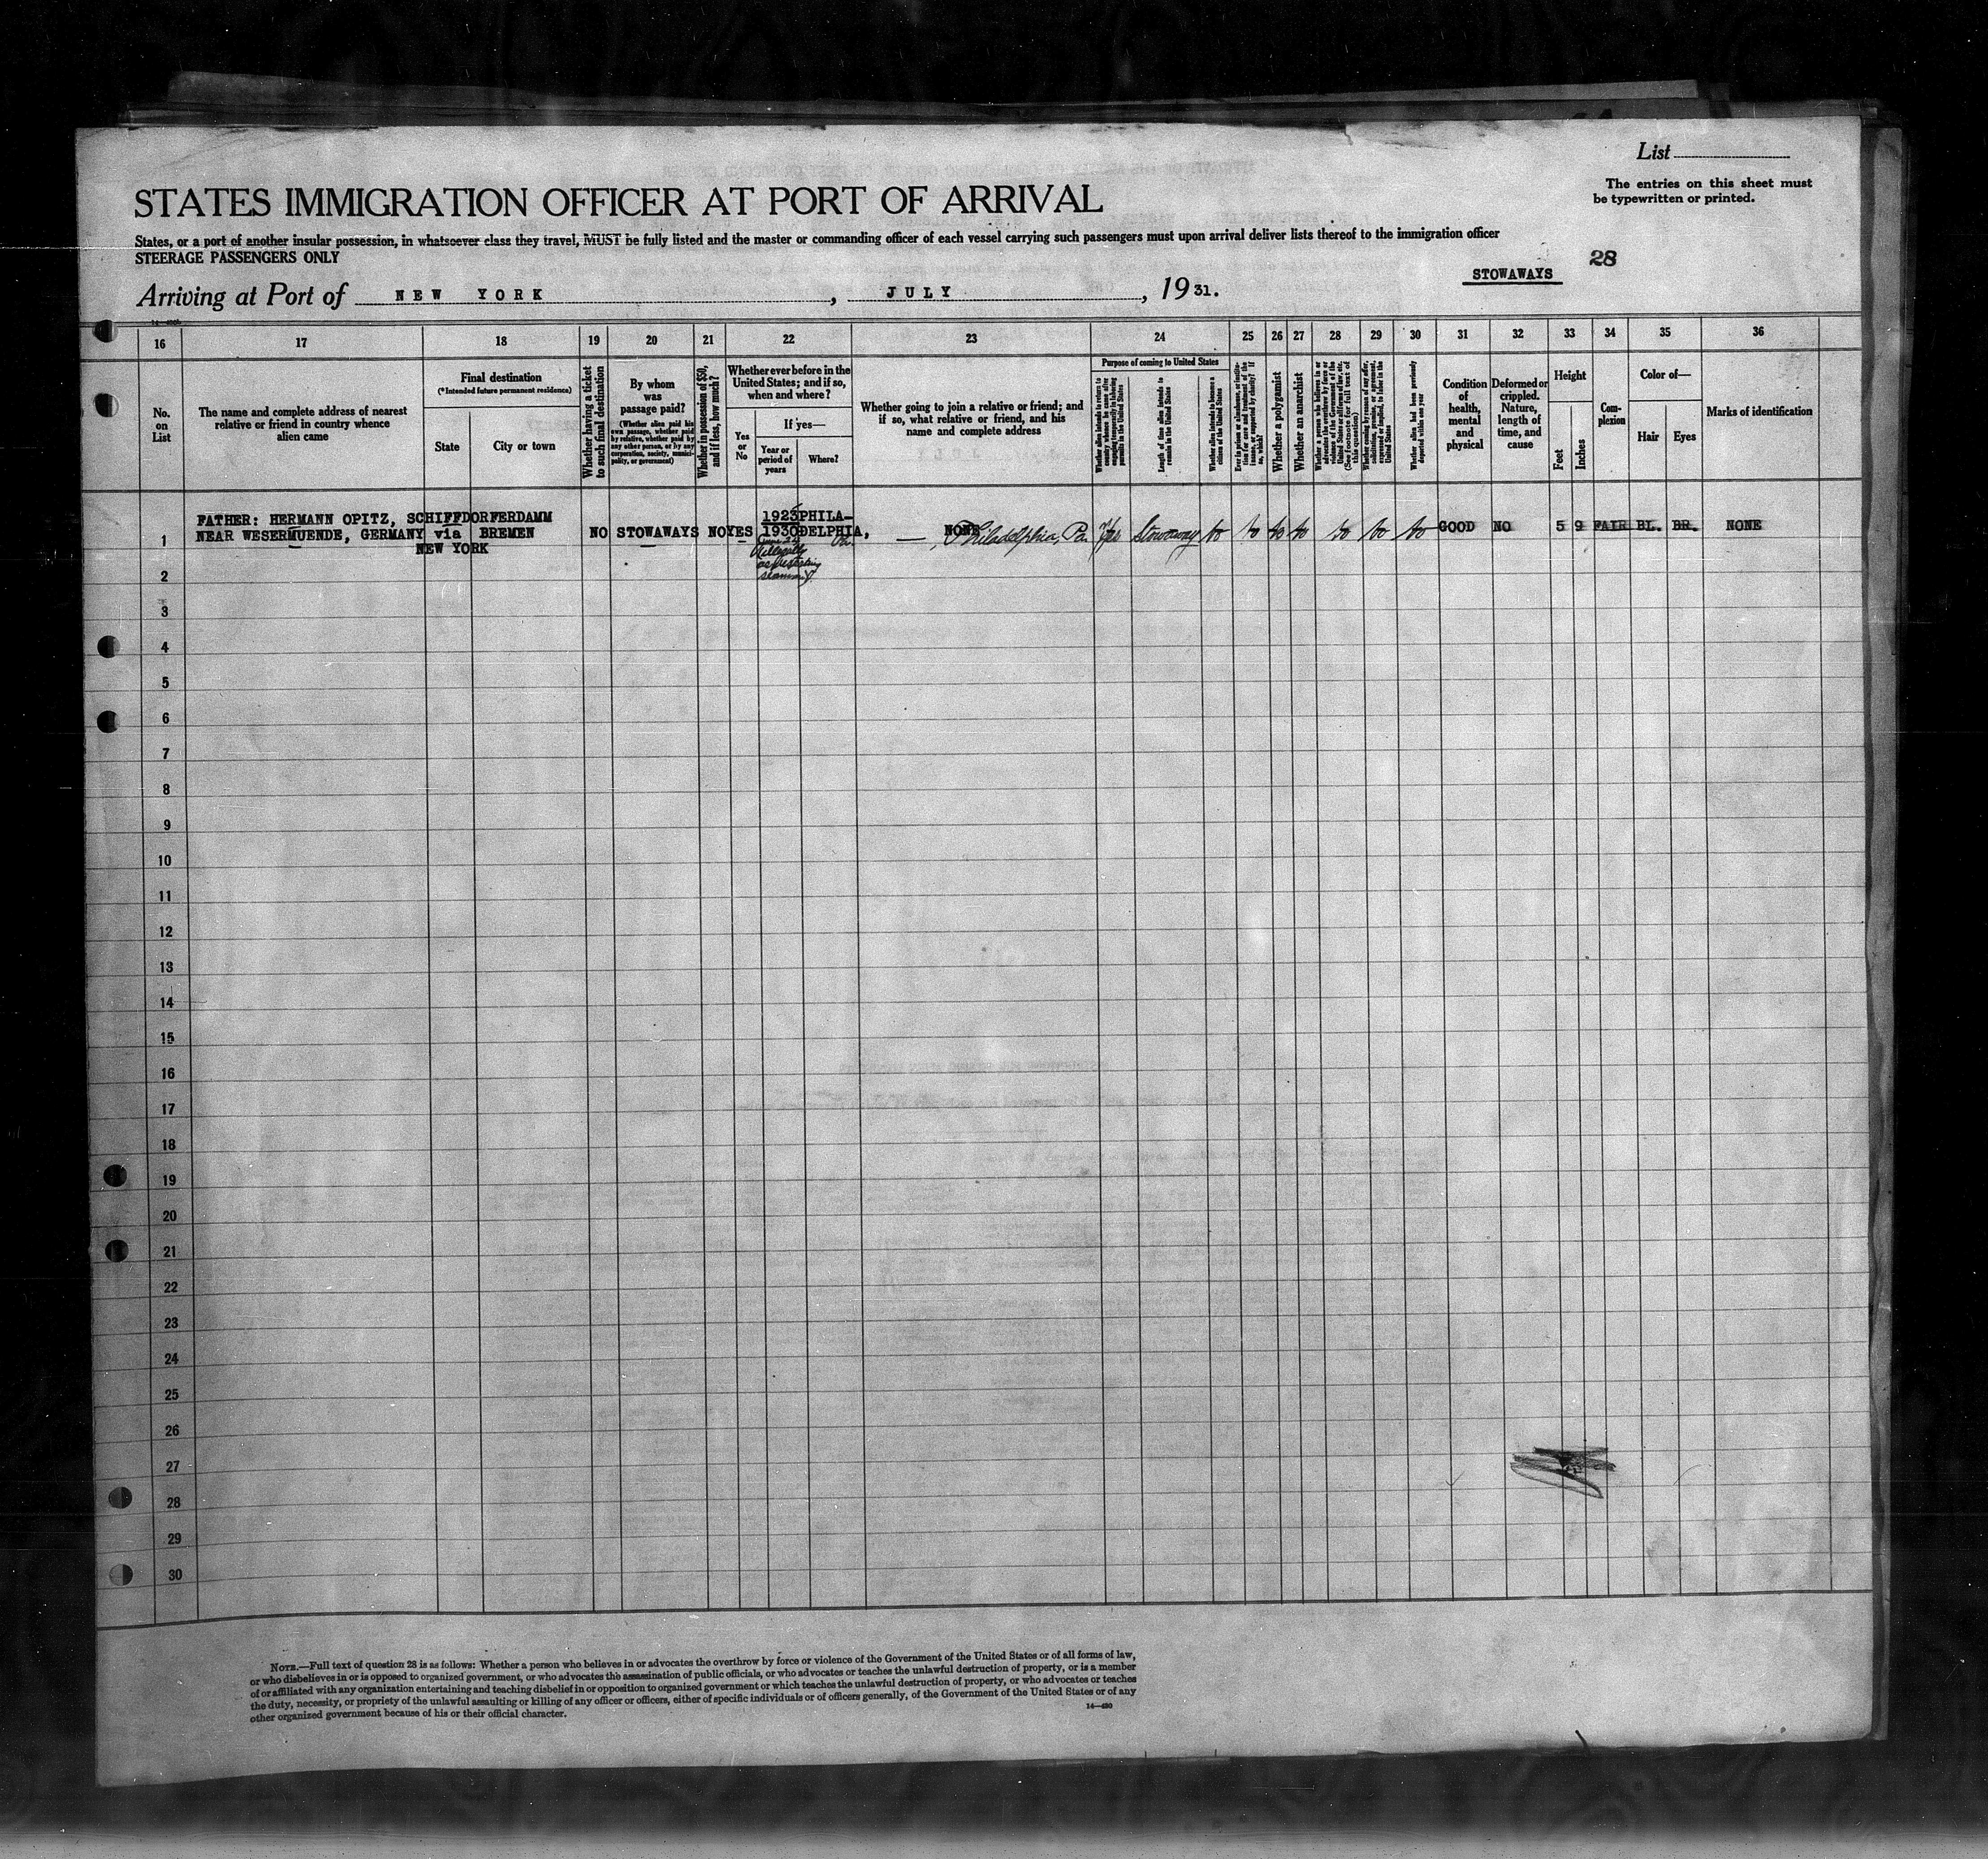 List
The entries on this sheet must
be typewritten or printed.
STATES IMMIGRATION OFFICER AT PORT OF ARRIVAL
States, or a port of another insular possession, in whatsoever class they travel, MUST be fully listed and the master or commanding officer of each vessel carrying such passengers must upon arrival deliver lists thereof to the immigration officer
STEERAGE PASSENGERS ONLY
STOWAWAYS 28
Arriving at Port of NEW YORK, JULY, 1931.
16 17 18 19 20 21 22 23 24 25 26 27 28 29 30 31 32 33 34 35 36
No. on List
The name and complete address of nearest
relative or friend in country whence
alien came
Final destination
(*Intended future permanent residence)
State
City or town
Whether having a ticket
to such final destination
By whom
was
passage paid?
(Whether alien paid his
own passage, whether paid
by relative, whether paid by
any other person, or by any
corporation, society, munici-
pality, or government)
Whether in possession of $50,
and if less, how much?
Whether ever before in the
United States; and if so,
when and where?
Yes
or
No
If yes—
Year or
period of
years
Where?
Whether going to join a relative or friend; and
if so, what relative or friend, and his
name and complete address
Purpose of coming to United States
Whether alien intends to return to
country whence he came after
engaging temporarily in laboring
pursuits in the United States
Length of time alien intends to
remain in the United States
Whether alien intends to become a
citizen of the United States
Whether a polygamist
Whether an anarchist
Whether alien had been previously
deported within one year
Condition
of
health,
mental
and
physical
Deformed or
crippled.
Nature,
length of
time, and
cause
Height
Feet
Inches
Com-
plexion
Color of—
Hair
Eyes
Marks of identification
1 FATHER: HERMANN OPITZ, SCHIFFDORFERDAMM
NEAR WESERMUENDE, GERMANY via BREMEN
NEW YORK
NO STOWAWAYS NO YES
1923 PHILA-
1930 DELPHIA, Pa.
June 24
illegally
as deserting
seaman
NONE
—, Philadelphia, Pa. Yes Stowaway No No No No No No No GOOD NO 5 9 FAIR BL. BR. NONE
2
3
4
5
6
7
8
9
10
11
12
13
14
15
16
17
18
19
20
21
22
23
24
25
26
27
28
29
30
NOTE.—Full text of question 28 is as follows: Whether a person who believes in or advocates the overthrow by force or violence of the Government of the United States or of all forms of law,
or who disbelieves in or is opposed to organized government, or who advocates the assassination of public officials, or who advocates or teaches the unlawful destruction of property, or is a member
of or affiliated with any organization entertaining and teaching disbelief in or opposition to organized government or which teaches the unlawful destruction of property, or who advocates or teaches
the duty, necessity, or propriety of the unlawful assaulting or killing of any officer or officers, either of specific individuals or of officers generally, of the Government of the United States or of any
other organized government because of his or their official character.
14—430